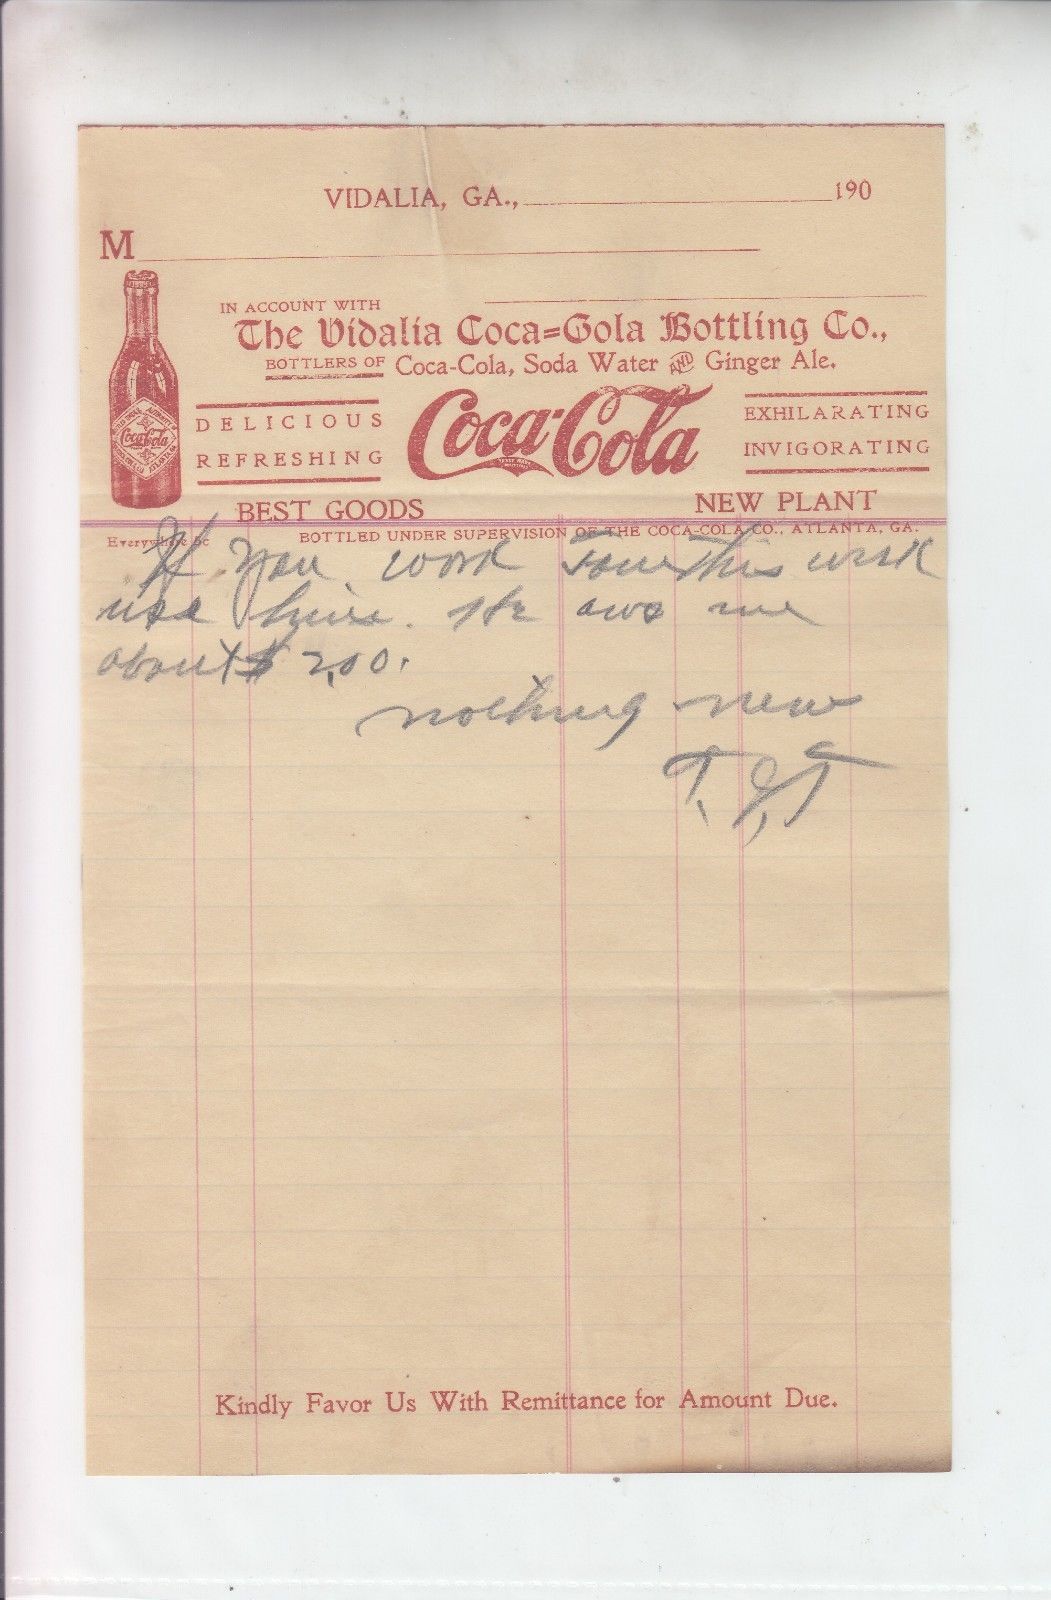 VIDALIA, GA., 190
M
IN ACCOUNT WITH
The Vidalia Coca=Gola Bottling Co.,
BOTTLERS OF Coca-Cola, Soda Water AND Ginger Ale.
DELICIOUS
REFRESHING
Coca-Cola
EXHILARATING
INVIGORATING
Coca-Cola
BEST GOODS
NEW PLANT
Everywhere 5c
BOTTLED UNDER SUPERVISION OF THE COCA-COLA CO., ATLANTA, GA.
If you work Tom this week
use him. He owes me
about $2,00.
nothing new
T. J. T
Kindly Favor Us With Remittance for Amount Due.